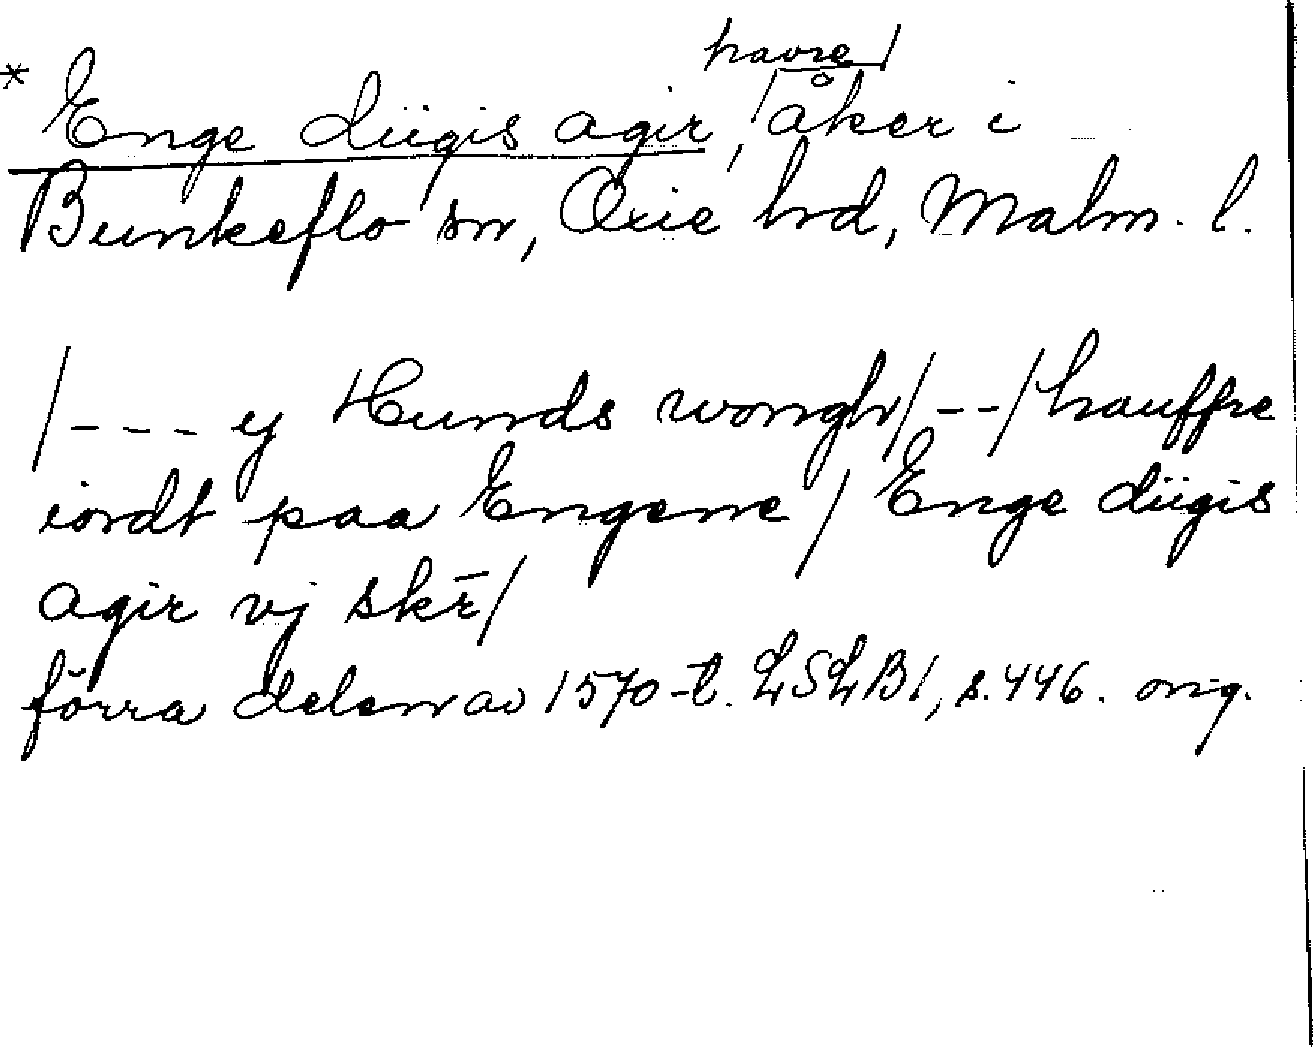 havre/
* Enge diigis agir, /åker i
Bunkeflo sn, Oxie hrd, Malm. l.
/--- y Hunds wongh/--/hauffre
iordt paa Engene/ Enge diigis
agir vj skr̄/
förra delen av 1570-t. LSLB1, s. 446. orig.